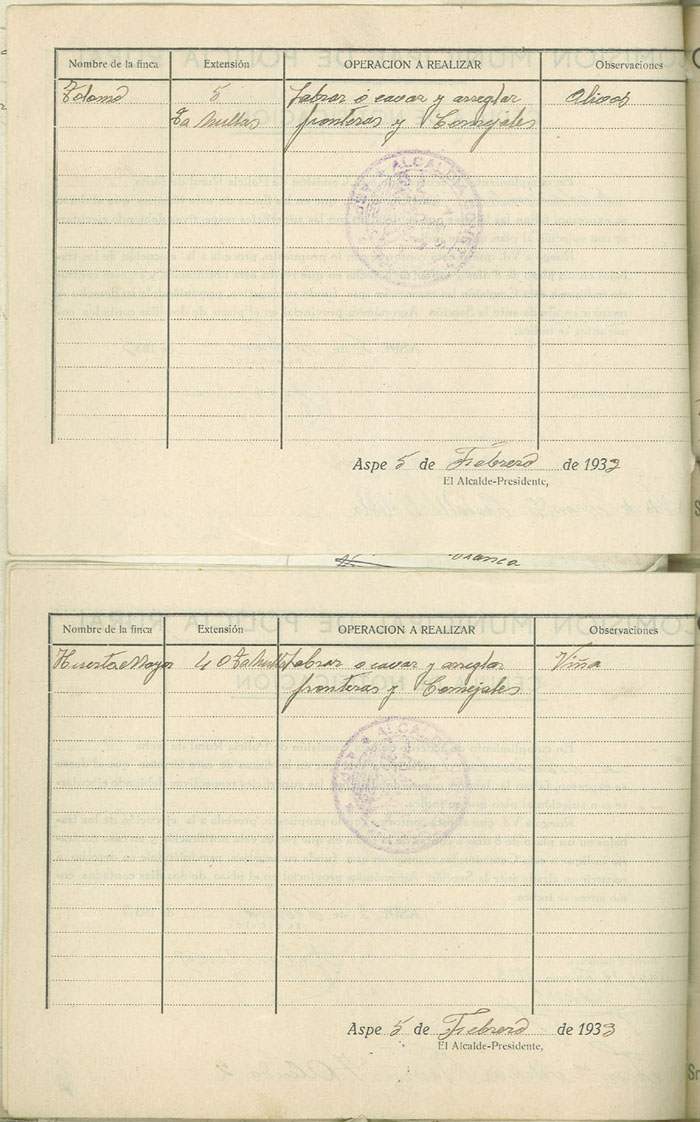 Nombre de la finca Extensión OPERACION A REALIZAR Observaciones
5 Labrar ó cavar y arreglar Olivos
Tahullas fronteras y Cornejales
ALCALDIA
Aspe 5 de Febrero de 1933
El Alcalde-Presidente,
Nombre de la finca Extensión OPERACION A REALIZAR Observaciones
Huerta Mayor 40 Tahullas Labrar ó cavar y arreglar Viña
fronteras y Cornejales
ALCALDIA
Aspe 5 de Febrero de 1933
El Alcalde-Presidente,